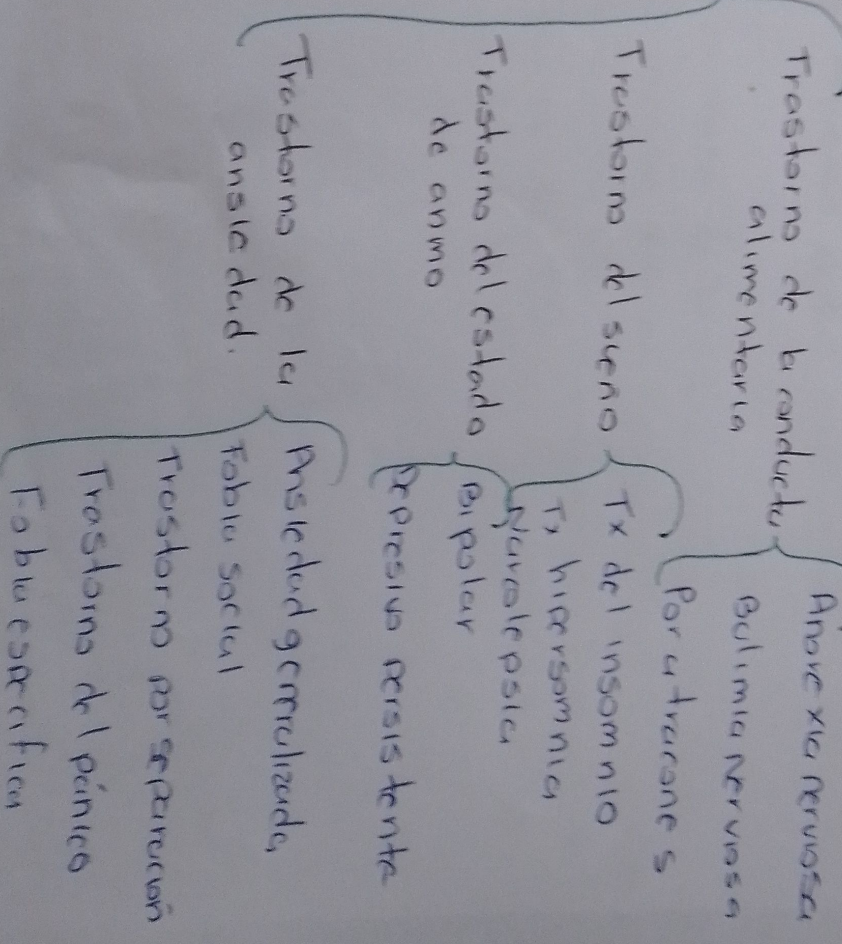 Trastorno de la conducta
alimentaria
Anorexia nerviosa
Bulimia nerviosa
Por atracones
Trastorno del sueño
Tx del insomnio
Tx hipersomnia
Narcolepsia
Trastorno del estado
de anmo
Bipolar
Depresivo persistente
Trastorno de la
ansiedad.
Ansiedad generalizada
Fobia social
Trastorno por separación
Trastorno del pánico
Fobia especifica